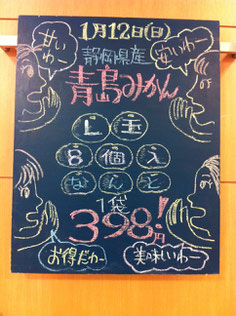 1月12日(日)
甘いわー
安いわー
静岡県産
青島みかん
L玉
8個入
なんと
1袋
398!円
お得だわー
美味いわー